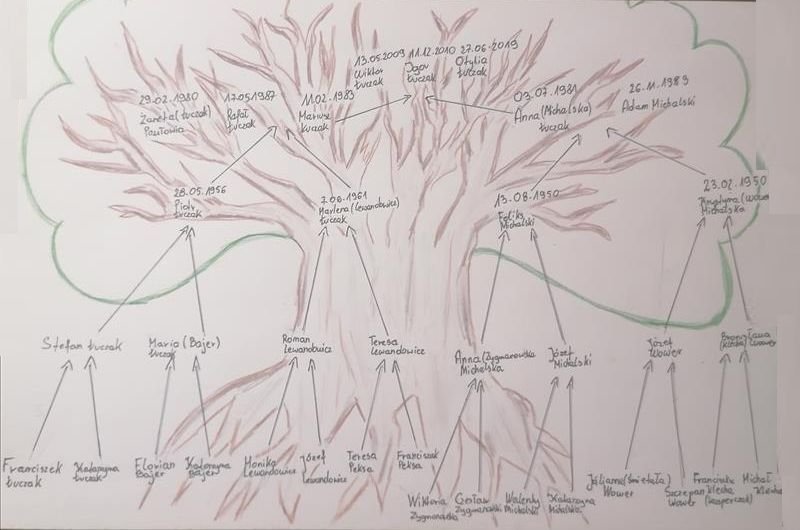 13.05.2009 11.12.2010 27.06.2019
Wiktor
Łuczak
Igor
Łuczak
Otylia
Łuczak
29.02.1980
Żaneta (Łuczak)
Pawłowia
17.05.1987
Rafał
Łuczak
11.02.1983
Mariusz
Łuczak
03.07.1981
Anna (Michalska)
Łuczak
26.11.1989
Adam Michalski
28.05.1956
Piotr
Łuczak
7.08.1961
Marlena (Lewandowicz)
Łuczak
13-08-1950
Feliks
Michalski
23.02.1950
Krystyna
Michalska
Stefan Łuczak
Maria (Bajer)
Łuczak
Roman
Lewandowicz
Teresa
Lewandowicz
Anna (Zygmanowska
Michalska
Józef
Michalski
Józef
Wower
Bronisława
Wower
Franciszek
Łuczak
Katarzyna
Łuczak
Florian
Bajer
Katarzyna
Bajer
Monika
Lewandowicz
Józef
Lewandowicz
Teresa
Peksa
Franciszek
Peksa
Wiktoria
Zygmanowska
Czesław
Zygmanowski
Walenty
Michalski
Katarzyna
Michalska
Julianna (Świetała)
Wower
Szczepan
Wower
Klecha
(Kasperczak)
Michał
Klecha